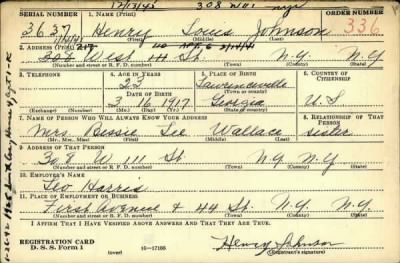 12/13/43 308 W 111 nyc
SERIAL NUMBER 1. NAME (Print) ORDER NUMBER
3637 Henry Louis Johnson 336
(First) (Middle) (Last)
2. ADDRESS (Print)
308 West 111 St. N.Y. N.Y.
(Number and street or R. F. D. number) (Town) (County) (State)
3. TELEPHONE 4. AGE IN YEARS 5. PLACE OF BIRTH 6. COUNTRY OF CITIZENSHIP
23 Lawrenceville
DATE OF BIRTH (Town or county)
3 16 1917 Georgia U.S
(Exchange) (Number) (Mo.) (Day) (Yr.) (State or country)
7. NAME OF PERSON WHO WILL ALWAYS KNOW YOUR ADDRESS 8. RELATIONSHIP OF THAT PERSON
Mrs. Bessie Lee Wallace sister
(Mr., Mrs., Miss) (First) (Middle) (Last)
9. ADDRESS OF THAT PERSON
308 W. 111 St. N.Y. N.Y.
(Number and street or R. F. D. number) (Town) (County) (State)
10. EMPLOYER'S NAME
Leo Harris
11. PLACE OF EMPLOYMENT OR BUSINESS
First Avenue & 44 St. N.Y. N.Y.
(Number and street or R. F. D. number) (Town) (County) (State)
I AFFIRM THAT I HAVE VERIFIED ABOVE ANSWERS AND THAT THEY ARE TRUE.
REGISTRATION CARD
D. S. S. Form 1 (over) 16—17105 Henry Johnson
(Registrant's signature)